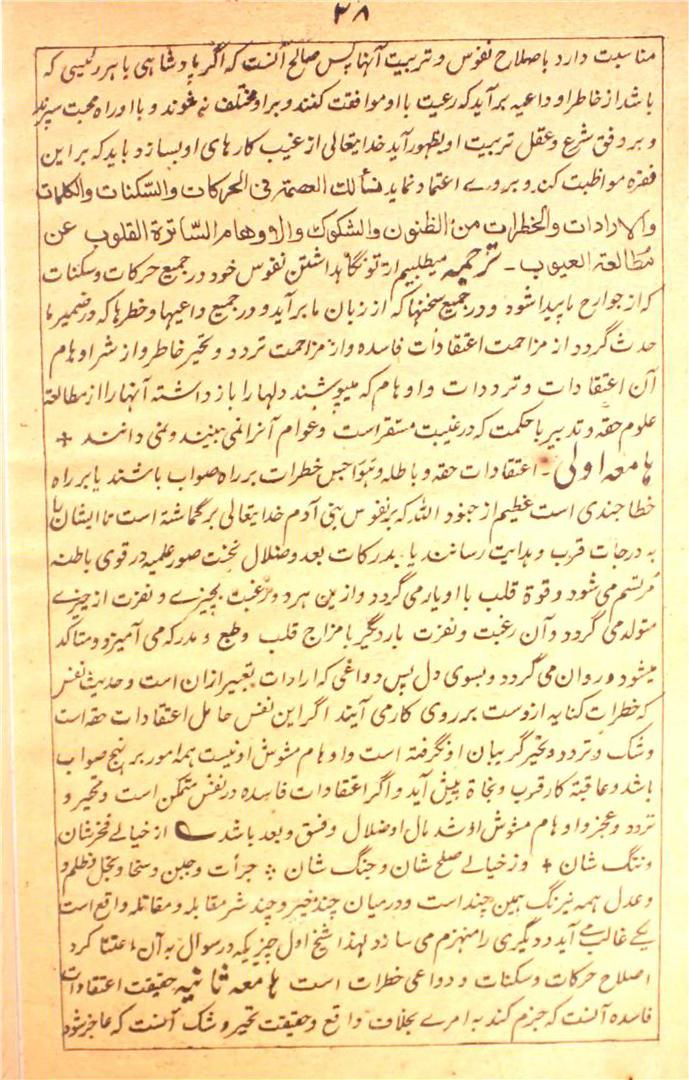 ۳۸
مناسبت دارد باصلاح نفوس و تربیت آنها پس صالح آنست که اگر پادشاهی با هر رئیسی که
باشد از خاطر او داعیه برآید که رعیت با او موافقت کنند و بر او مختلف نه شوند و با او راه محبت سپرند
و بر وفق شرع و عقل تربیت او بظهور آید خدایتعالی از غیب کارهای او بسازد باید که بر این
فقره مواظبت کند و بروے اعتماد نماید نسألك العصمة فی الحركات والسّكنات والكلمات
والارادات والخطرات من الظنون والشكوك والاوهام السّاترة القلوب عن
مطالعة العیوب ـ ترجمه میطلبیم از تو نگاهداشتن نفوس خود در جمیع حرکات و سکنات
که از جوارح ما پیدا شود و در جمیع سخنها که از زبان ما برآید و در جمیع داعیها و خطرها که در ضمیر ما
حدث گردد از مزاحمت اعتقادات فاسده و از مزاحمت تردد و تحیر خاطر و از شر اوهام
آن اعتقادات و ترددات و اوهام که میپوشند دلها را بازداشته آنها را از مطالعة
علوم حقه و تدبیر با حکمت که در غیبت مستقر است و عوام آنرا نمی بینند و نمی دانند +
هامعه اولی ـ اعتقادات حقه و باطله و هواجس خطرات بر راه صواب باشند یا بر راه
خطا جندی است عظیم از جنود الله که بر نفوس بنی آدم خدایتعالی برگماشته است تا ایشان را
به درجات قرب و هدایت رسانند یا بدرکات بعد و ضلال نخست صور علمیه در قوی باطنه
مرتسم می شود و قوة قلب با او یار می گردد و ازین هر دو رغبت بچیزے و نفرت از چیزے
متولد می گردد و آن رغبت و نفرت بار دگیر با مزاج قلب و طبع و مدرکه می آمیزد و متأکد
میشود و روان می گردد و بسوی دل پس دواعی که ارادات تعبیر از ان است و حدیث نفس
که خطرات کنایه ازوست بر روی کار می آیند اگر این نفس حامل اعتقادات حقه است
و شک و تردد و تحیر گریبان او نگرفته است و اوهام مشوش او نیست همه امور بر نهج صواب
باشد و عاقبة کار قرب و نجاة پیش آید و اگر اعتقادات فاسده در نفس متمکن است و تحیر و
تردد و عجز و اوهام مشوش او شد مآل او ضلال و فسق و بعد باشد ؎ از خیالے فخرشان
و ننگ شان + وز خیالے صلح شان و جنگ شان ؞ جرأت و جبن و سخا و بخل و ظلم و
و عدل همه نیرنگ همین چند است و درمیان چند خیر و چند شر مقابله و مقاتله واقع است
یکے غالب مے آید و دیگری را منهزم می سازد لهذا شیخ اول چیزیکه در سوال به آن اعتنا کرد
اصلاح حرکات و سکنات و دواعی خطرات است هامعه ثانیه حقیقت اعتقادات
فاسده آنست که جزم کند به امرے بخلاف واقع و حقیقت تحیر و شک آنست که عاجز شود